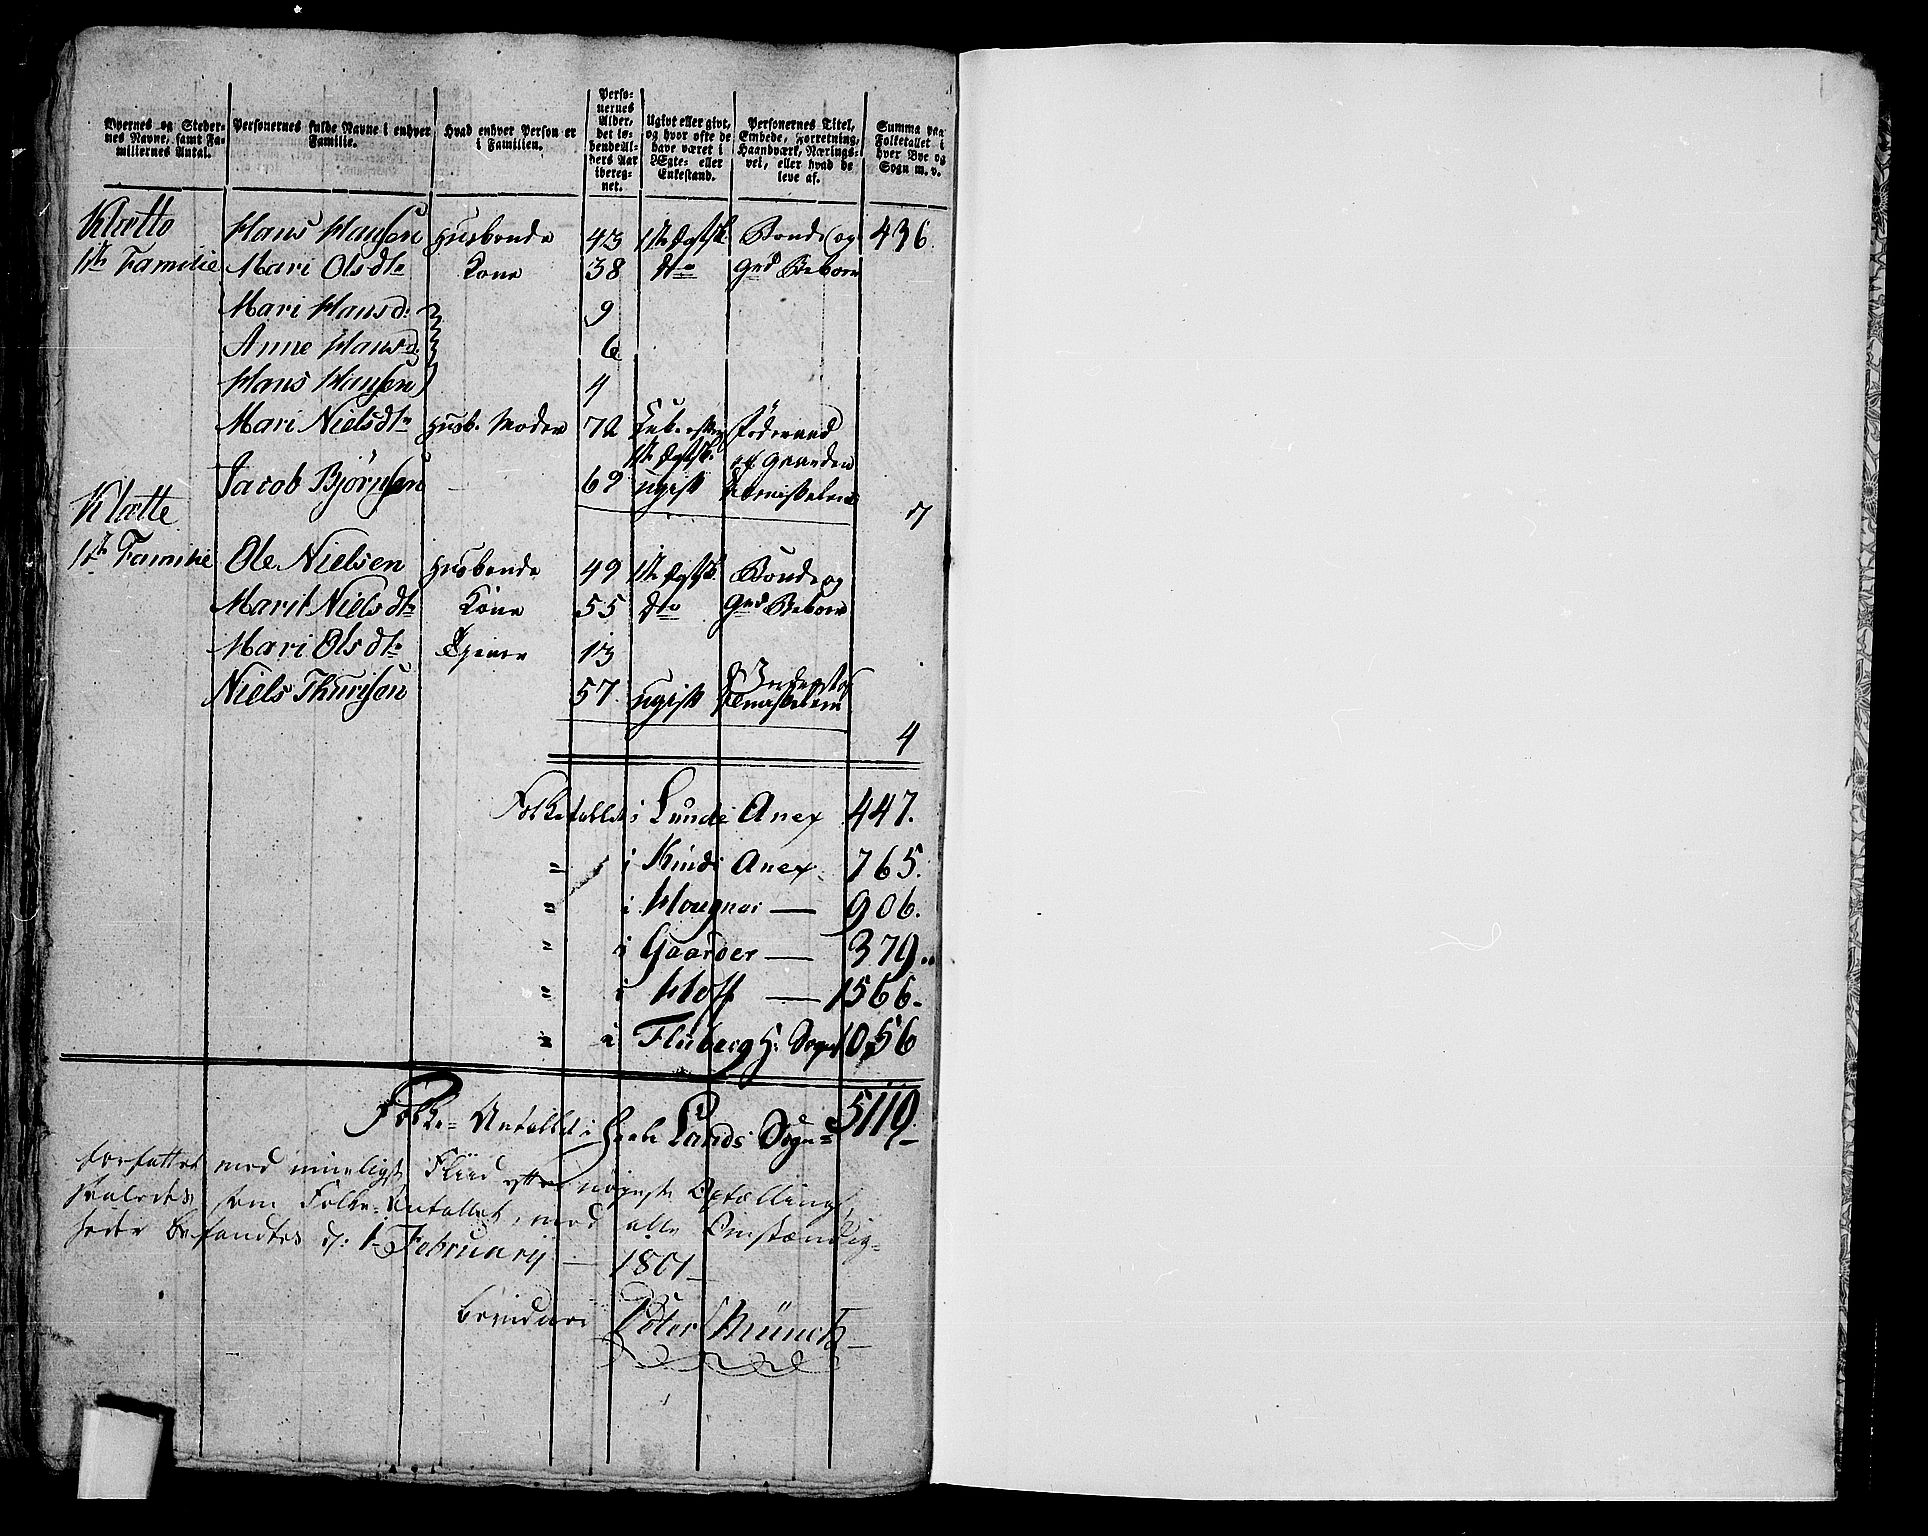 Byernes og Steder-
nes Navne, samt Fa-
miliernes Antal.
Personernes fulde Navne i enhver
Familie.
Hvad enhver Person er
i Familien.
Perso-
nernes
Alder,
det lø-
bende Al-
ders Aar
ibereg-
net.
Ugivt eller givt,
og hvor ofte de
have været i
Ægte- eller
Enkestand.
Personernes Titel,
Embede, Forretning,
Haandværk, Nærings-
vei, eller hvad de
leve af.
Summa paa
Folketallet i
hver Bye og
Sogn m. v.
Klætte Hans Hansen Husbonde 43 1ste Ægtsk. Bonde og 436.
1te Familie Mari Olsdtr Kone 38 dto Grd Beboer
Mari Hansd. 9
Anne Hansd. 6
Hans Hansen 4
Mari Nielsdtr Husb. Moder 72 Enke efter Føderaad
1ste Ægtsk. af Gaarden
Jacob Bjørnsen 69 ugift
Klætte 7
1te Familie Ole Nielsen Husbonde 49 1ste Ægtsk. Bonde og
Marit Nielsdtr Kone 55 dto Grd Beboer
Mari Olsdtr 13
Niels Thurisen 57 ugift
4
Folketallet i Lunde Anex 447.
" i Kinds Anex 765.
" i Hougner — 906.
" i Gaarder — 379..
" i Hoff — 1566.
" i Fluberg H: Sogn 1056
Folke-Antallet i heele Lands Sogn = 5119.
forfattet med mueligst Fliid efter nøyeste Optælling,
saaledes som Folke-Antallet, med alle Omstændig-
heder befandtes d: 1 February — 1801 —
Peter Münch